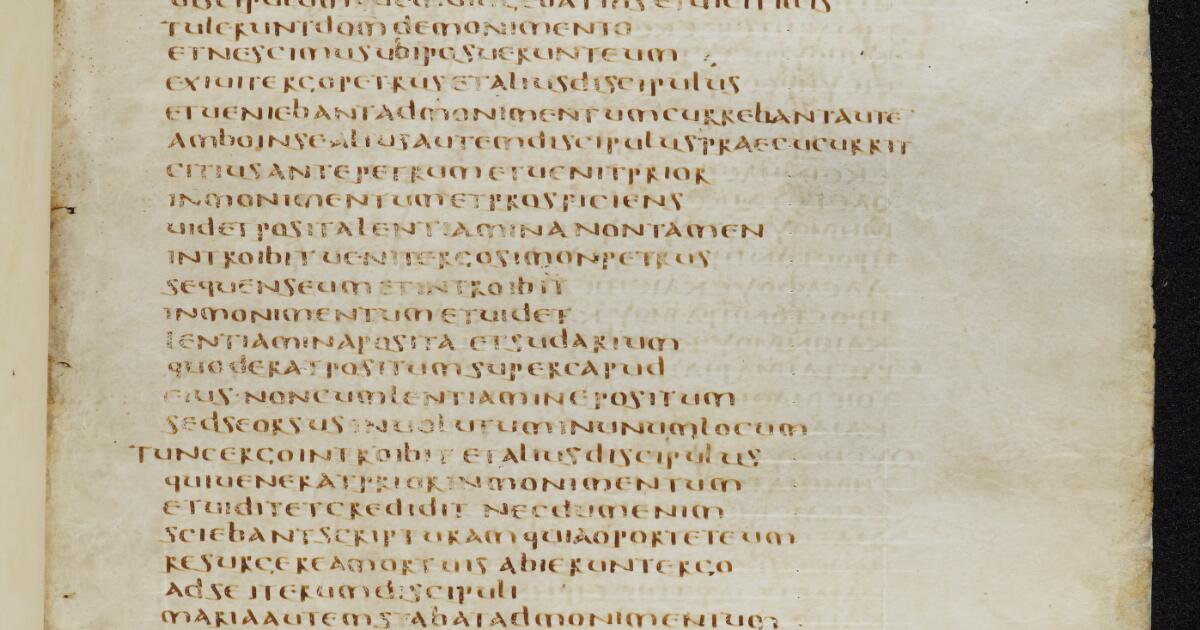 TULERUNTDOMDEMONIMENTO
ETNESCIMUSUBIPOSUERUNTEUM
EXIUITERGOPETRUSETALIUSDISCIPULUS
ETUENIEBANTADMONIMENTUMCURREBANTAUTE
AMBOINSE ALIUSAUTEMDISCIPULUSPRAECUCURRIT
CITIUSANTEPETRUMETUENITPRIOR
INMONIMENTUMETPROSPICIENS
UIDETPOSITALENTIAMINANONTAMEN
INTROIBITUENITERGOSIMONPETRUS
SEQUENSEUMETINTROIBIT
INMONIMENTUMETUIDET
LENTIAMINAPOSITA ETSUDARIUM
QUODERATPOSITUMSUPERCAPUD
EIUS·NONCUMLENTIAMINEPOSITUM
SEDSEORSUSINUOLUTUMINUNUMLOCUM
TUNCERGOINTROIBIT ETALIUSDISCIPULUS
QUIUENERATPRIORINMONIMENTUM
ETUIDITETCREDIDIT NECDUMENIM
SCIEBANTSCRIPTURAMQUIAOPORTETEUM
RESURGEREAMORTUIS ABIERUNTERGO
ADSE ITERUMDISCIPULI
MARIAAUTEMSTABATADMONIMENTUM